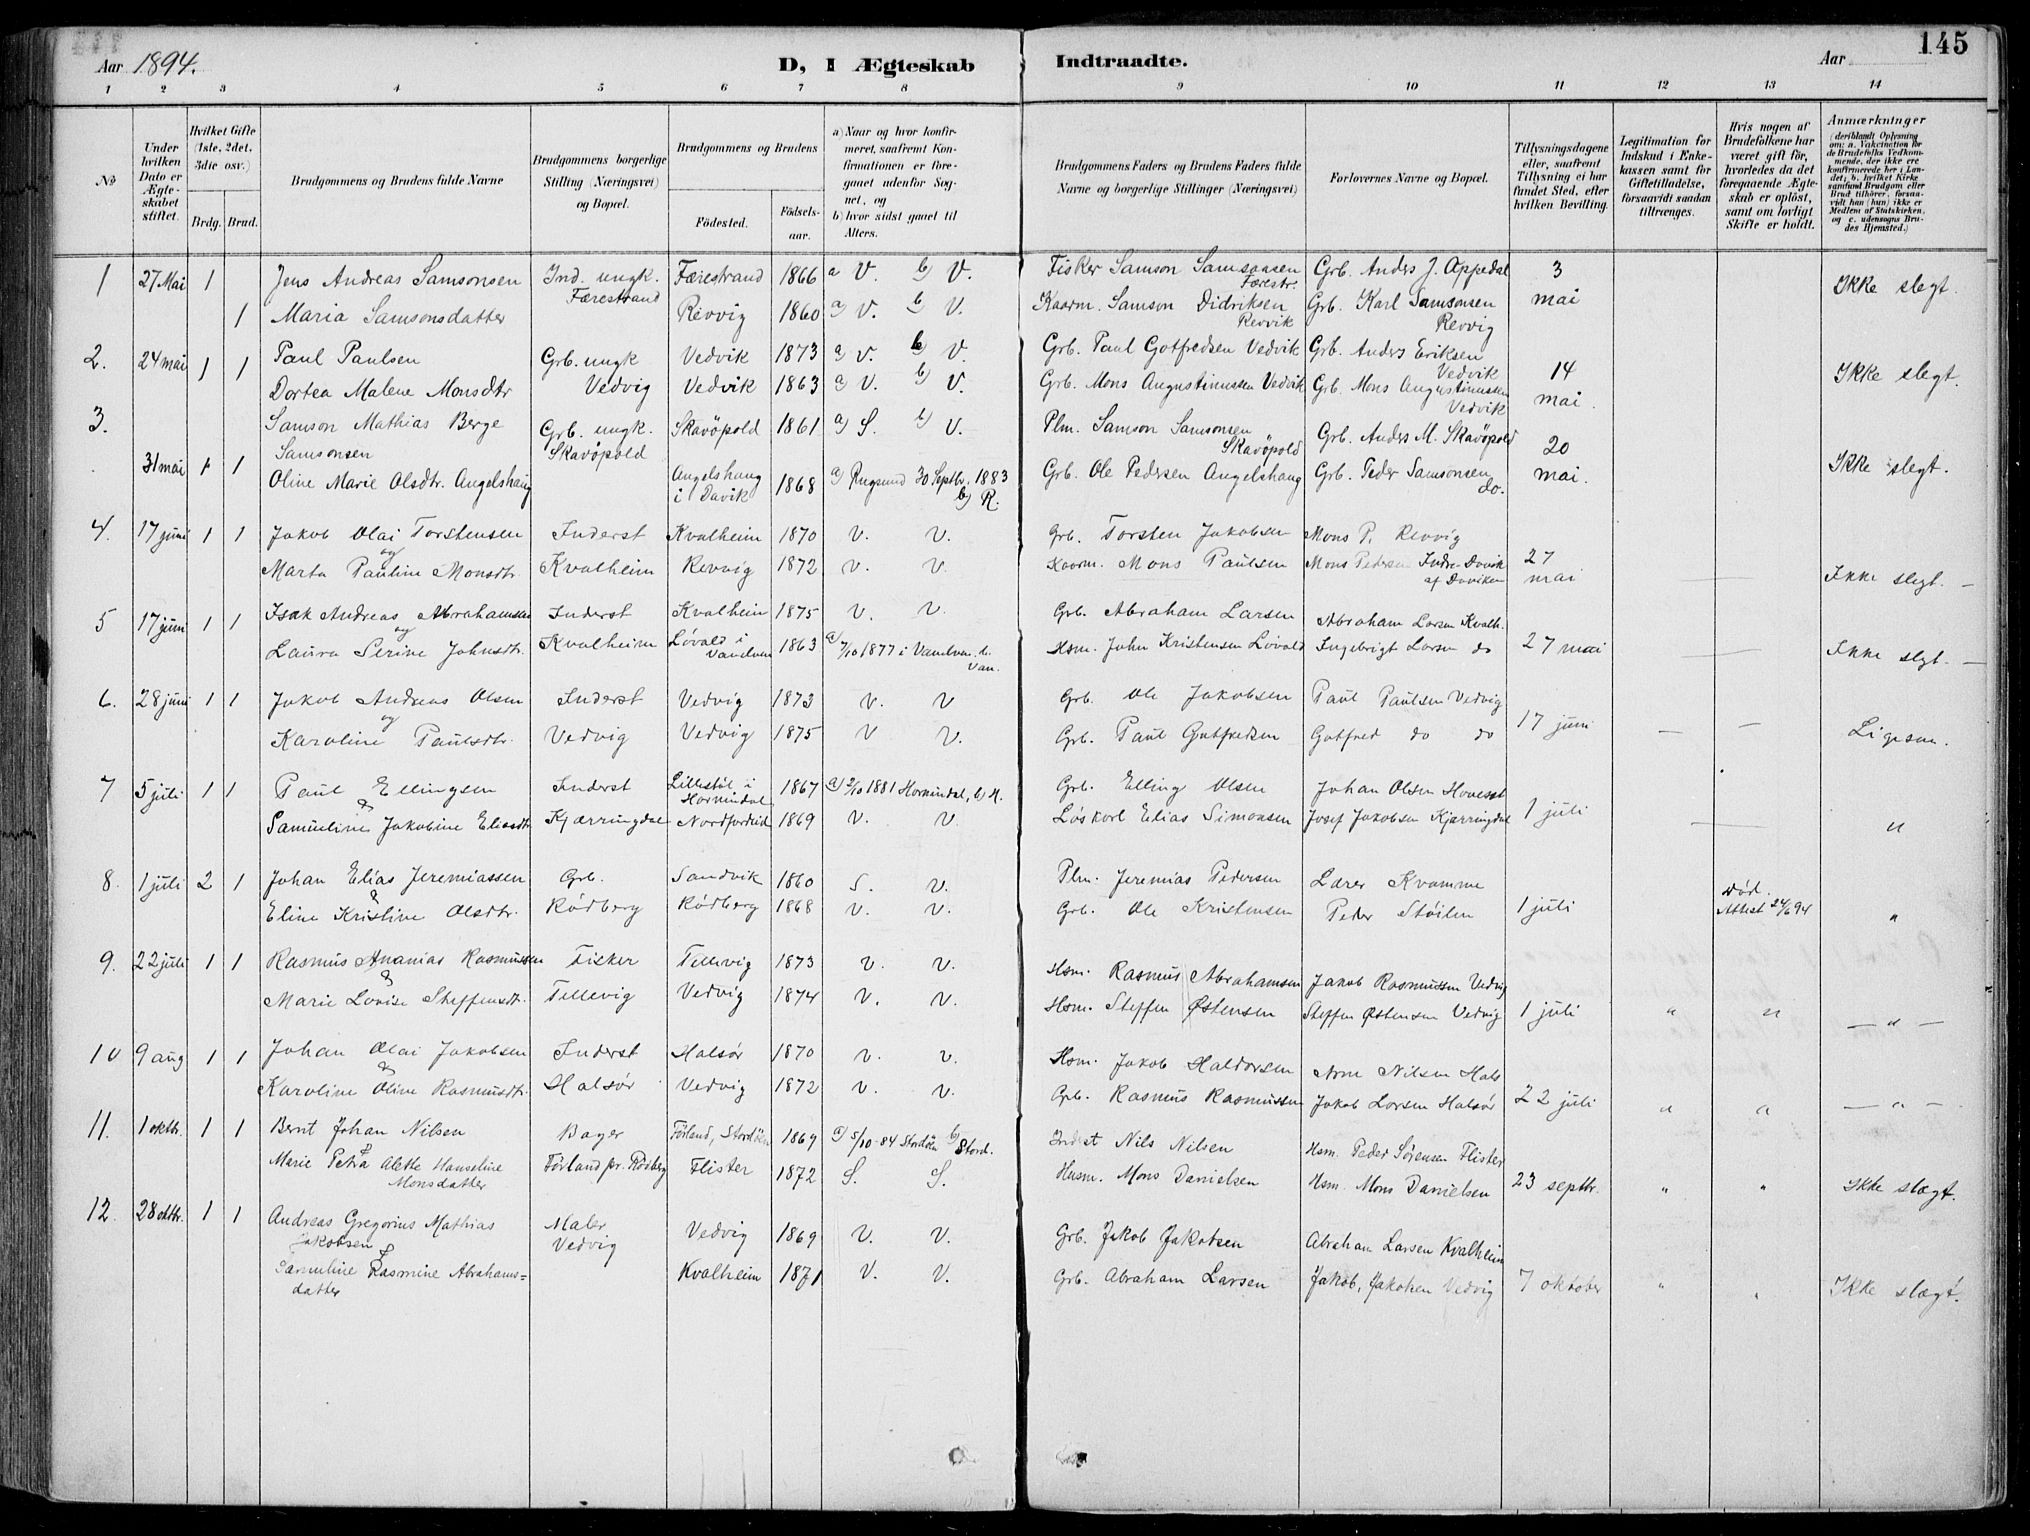 145
Aar 1894.
D, I Ægteskab Indtraadte.
Aar
1 2 3 4 5 6 7 8 9 10 11 12 13 14
No
Under hvilken Dato er Ægteskabet stiftet.
Hvilket Gifte (1ste, 2det, 3die osv.)
Brdg. Brud.
Brudgommens og Brudens fulde Navne
Brudgommens borgerlige Stilling (Næringsvei) og Bopæl.
Brudgommens og Brudens
Fødested.
Fødselsaar.
a) Naar og hvor konfirmeret, saafremt Konfirmationen er foregaaet udenfor Sognet, og
b) hvor sidst gaaet til Alters.
Brudgommens Faders og Brudens Faders fulde Navne og borgerlige Stillinger (Næringsvei)
Forlovernes Navne og Bopæl.
Tillysningsdagene eller, saafremt Tillysning ei har fundet Sted, efter hvilken Bevilling.
Legitimation for Indskud i Enkekassen samt for Giftetilladelse, forsaavidt saadan tiltrænges.
Hvis nogen af Brudefolkene har været gift før, hvorledes da det foregaaende Ægteskab er opløst, samt om lovligt Skifte er holdt.
Anmærkninger (deriblandt Oplysning om: a. Vakcination for de Brudefolks Vedkommende, der ikke ere konfirmerede her i Landet; b. hvilket Kirkesamfund Brudgom eller Brud tilhører, forsaavidt han (hun) ikke er Medlem af Statskirken, og c. udensogns Brudes Hjemsted.)
1 27 Mai 1 Jens Andreas Samsonsen Ind. ungk. Færestrand Færestrand 1866 a V. b) V. Fisker Samson Samsonsen Færestr. Grb. Anders J. Appedal 3 mai Ikke slegt.
1 Maria Samsonsdatter Revvig 1860 a) V. b) V. Kaarm. Samson Didriksen Revvik Grb. Karl Samsonsen Revvig
2. 24 mai 1 1 Paul Paulsen Grb. ungk Vedvig Vedvik 1873 a) V. b) V. Grb. Paul Gotfredsen Vedvik Grb. Anders Eriksen Vedvik 14 mai. Ikke slegt.
Dortea Malene Monsdtr Vedvik 1863 a) V. b) V. Grb. Mons Augustinussen Vedvik Grb. Mons Augustinussen Vedvik
3. 31 mai 1 1 Samson Mathias Berge Samsonsen Grb. ungk. Skavøpold Skavöpold 1861 a) S. b) V. Plm. Samson Samsonsen Skavöpold Grb. Anders M. Skavöpold 20 mai. Ikke slegt.
Oline Marie Olsdtr. Angelshaug Angelshaug i Davik 1868 a) Rugsund 30 Septbr. 1883 b) R. Grb. Ole Pedersen Angelshaug Grb. Peder Samsonsen do.
4. 17 juni 1 1 Jakob Olai Torstensen og Inderst Kvalheim 1870 V. V. Grb. Torsten Jakobsen Mons P. Revvig
Marta Pauline Monsdtr. Kvalheim Revvig 1872 V. V. Kaarm. Mons Paulsen Mons Pedersen Indre Davik af Daviken 27 mai — — Ikke slegt. —
5 17 juni 1 1 Isak Andreas Abrahamsen og Inderst Kvalheim 1875 V. V. Grb. Abraham Larsen Abraham Larsen Kvalh.
Laura Serine Johnsdtr. Kvalheim Løvold i Vanelven 1863 a) 7/10 1877 i Vanelven. b. Van. Hsm. John Kristensen Løvold Ingebrigt Larsen do 27 mai — — Ikke slegt. —
6. 28 juni 1 1 Jakob Andreas Olsen og Inderst Vedvig 1873 V. V Grb. Ole Jakobsen Paul Paulsen Vedvig
Karoline Paulsdtr. Vedvig Vedvig 1875 V V. Grb. Paul Gotfredsen Gotfred do do 17 juni — — Ligesaa.
7 5 juli 1 1 Paul Ellingsen & Inderst Lillestøl i Hornindal 1867 a) 2/10 1881 Hornindal, b) H. Grb. Elling Olsen Johan Olsen
Samuline Jakobine Eliasdtr Kjærringdal Nordfjordeid 1869 V. V. Løskarl Elias Simonsen Josef Jakobsen Kjærringdal 1 juli — "
8. 1 juli 2 1 Johan Elias Jeremiassen & Grb. Sandvik 1860 S. V. Plm. Jeremias Pedersen Lærer Kvamme Død. Attest 24/6 94
Eline Kristine Olsdtr. Rödberg Rödberg 1868 V. V. Grb. Ole Kristensen Peder Støilen 1 juli "
9. 22 juli 1 1 Rasmus Ananias Rasmussen & Fisker Tillevig 1873 V. V. Hsm. Rasmus Abrahamsen Jakob Rasmussen Vedvig
Marie Lovise Steffensdt. Tellevig Vedvig 1874 V. V. Hsm. Steffen Østensen Steffen Østensen Vedvig 1 juli " " — " —
10 9 aug 1 1 Johan Olai Jakobsen & Inderst Halsør 1870 V. V. Hsm. Jakob Haldorsen Arne Nilsen Hals
Karoline Oline Rasmusdtr. Halsør Vedvig 1872 V. V. Grb. Rasmus Rasmussen Jakob Larsen Halsör 22 juli " " — " —
11. 1 oktbr. 1 1 Bernt Johan Nilsen & Bager Førland, Stordöen 1869 a) 5/10-84 Stordöen b) Stord. Inderst Nils Nilsen Hsm. Peder Sørensen Flister
Marie Petra Alette Hanseline Monsdatter Førland pr. Rödberg Flister 1872 S. S. Husm. Mons Danielsen Hsm. Mons Danielsen 23 septbr. " " Ikke slægt.
12. 28 oktbr. 1 1 Andreas Gregorius Mathias Jakobsen & Maler Vedvig Vedvig 1869 V. V. Grb. Jakob Jakobsen Abraham Larsen Kvalheim
Samuline Rasmine Abrahamsdatter Kvalheim 1871 V. V. Grb. Abraham Larsen Jakob Jakobsen Vedvig 7 oktober " " Ikke slægt.